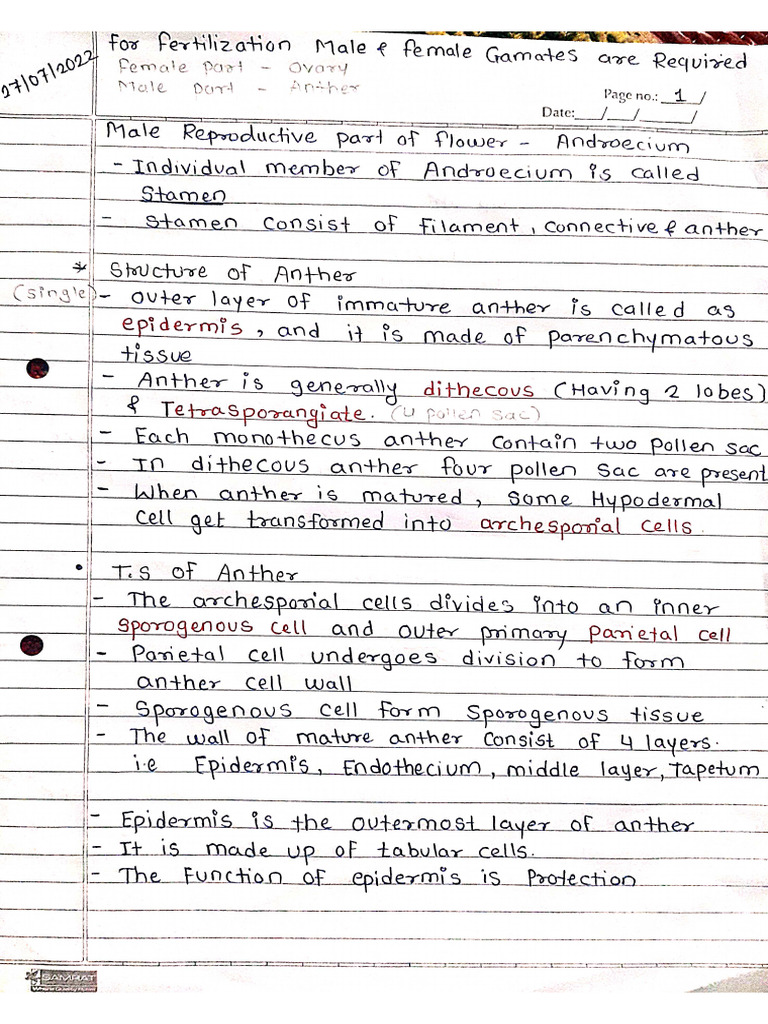 for fertilization Male & female Gamates are Required
17/07/2022
Female part - Ovary
Male Part - Anther
Page no.: 1 /
Date: / / /
Male Reproductive part of flower - Androecium
- Individual member of Androecium is called
Stamen
- Stamen consist of filament, connective & anther
* Structure of Anther
(single) - outer layer of immature anther is called as
epidermis, and it is made of parenchymatous
tissue
- Anther is generally dithecous (Having 2 lobes)
& Tetrasporangiate. (4 pollen sac)
- Each monothecus anther contain two pollen sac
- In dithecous anther four pollen sac are present
- When anther is matured, some Hypodermal
cell get transformed into archesporial cells.
• T.S of Anther
- The archesporial cells divides into an inner
sporogenous cell and outer primary parietal cell
- Parietal cell undergoes division to form
anther cell wall
- Sporogenous cell form sporogenous tissue
- The wall of mature anther consist of 4 layers.
i.e Epidermis, Endothecium, middle layer, Tapetum
- Epidermis is the outermost layer of anther
- It is made up of tabular cells.
- The function of epidermis is Protection
SAMRAT